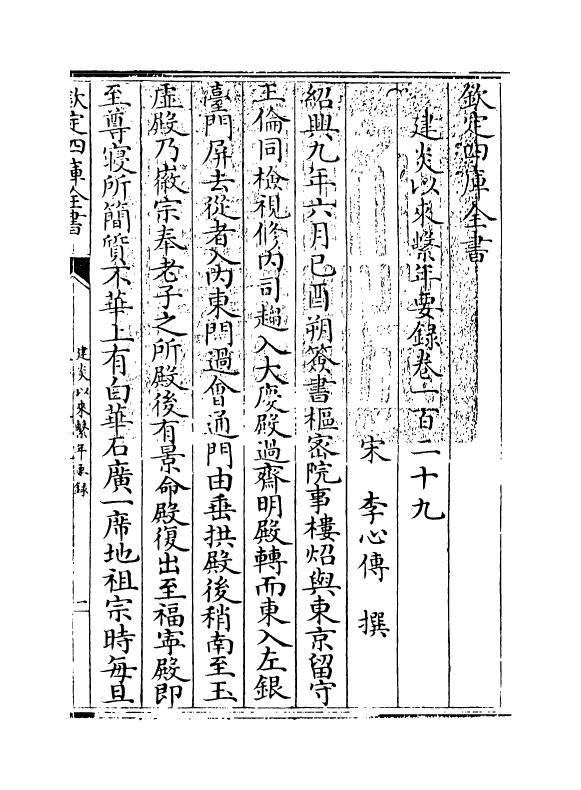 欽定四庫全書
建炎以來繫年要錄卷一百二十九
宋 李心傳 撰
紹興九年六月己酉朔簽書樞密院事樓炤與東京留守
王倫同檢視修內司趨入大慶殿過齋明殿轉而東入左銀
臺門屏去從者入內東門過會通門由垂拱殿後稍南至玉
虛殿乃徽宗奉老子之所殿後有景命殿復出至福寧殿即
至尊寢所簡質不華上有白華石廣一席地祖宗時每旦
欽定四庫全書
建炎以來繫年要錄